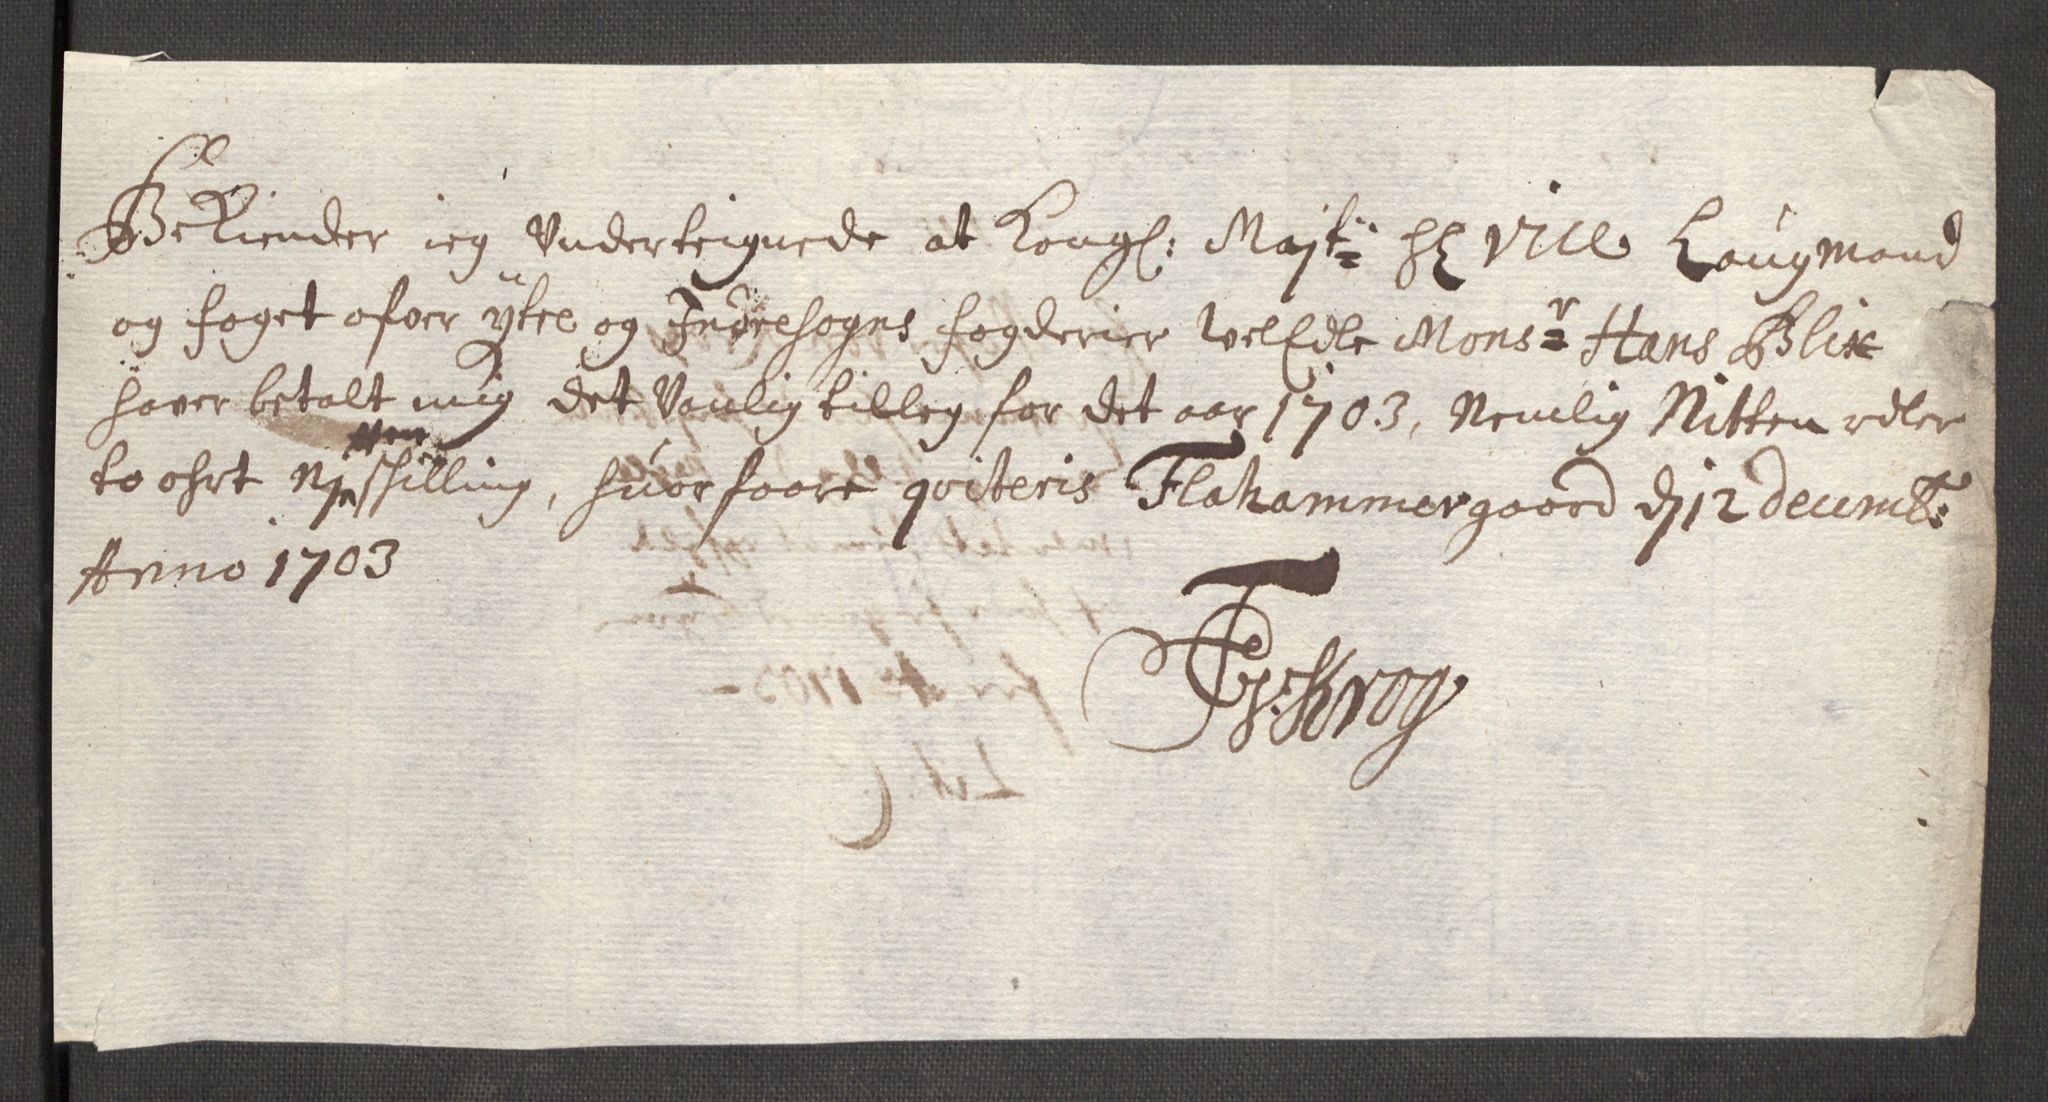 Bekiender ieg Underteignede at Kongl: Majt: Hr Vice Laugmand
og foget ofver ÿtre og Indresogns fogderier VelEdle Monsr Hans Blix
haver betalt mig det Vanlig tilleg for det aar 1703, Nemlig Nitten rdler
to ohrt shilling, huorfaare qviteris Flahammergaard d 12 decemb:
Anno 1703
Krog